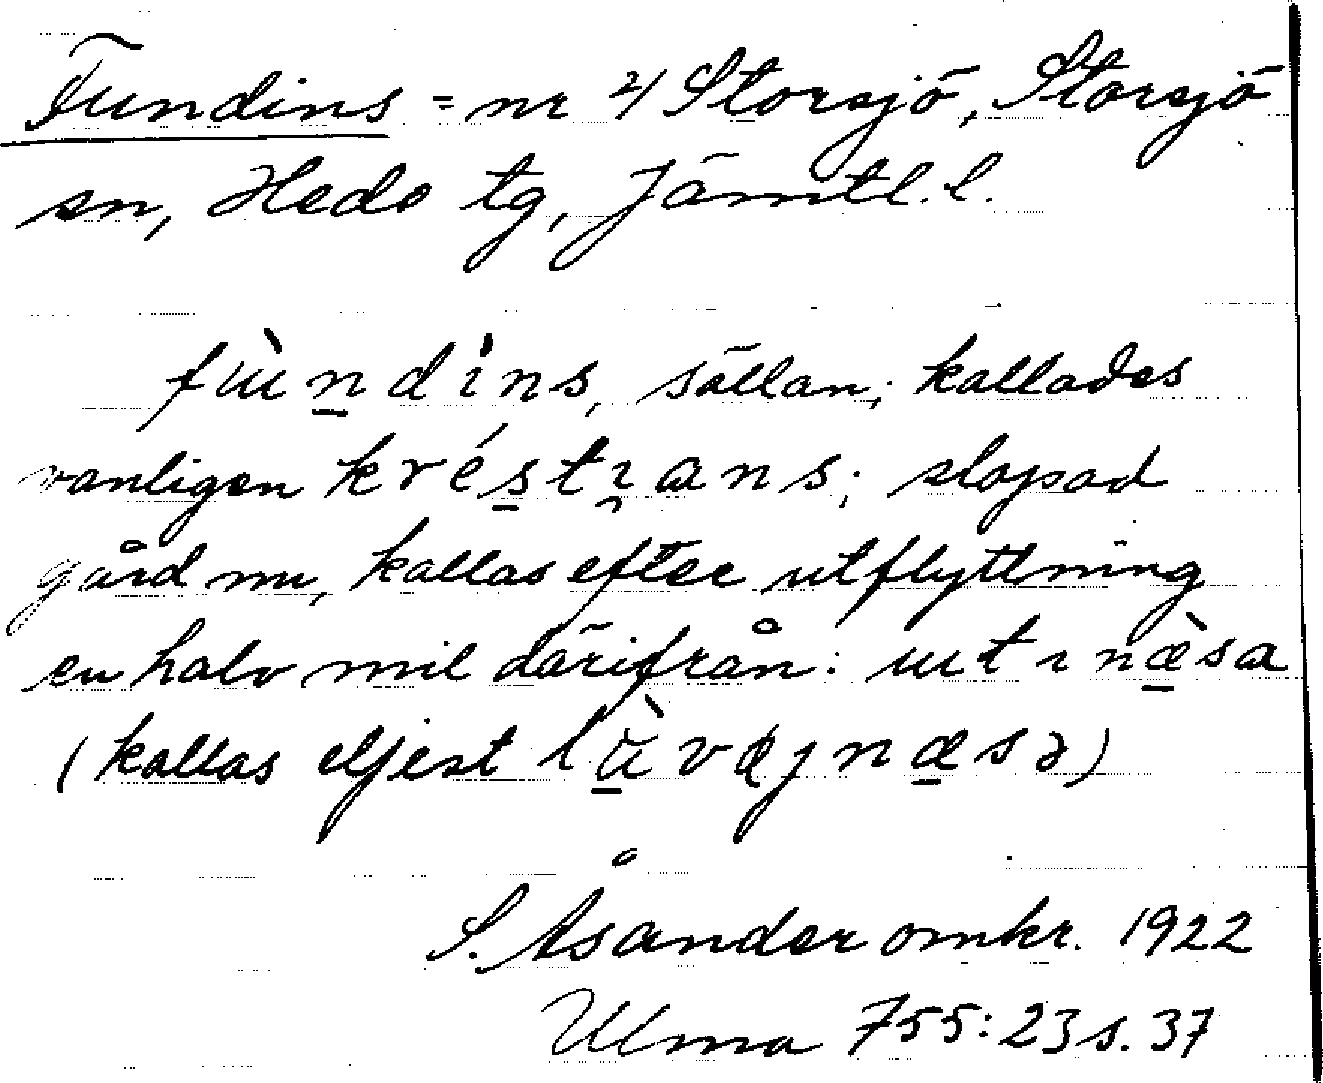 Fundins = nr 4 Storsjö, Storsjö
sn, Hede tg, Jämtl. l.
fùndins, sällan; kallades
vanligen kréstı̯ans; slopad
gård nu, kallas efter utflyttning
en halv mil därifrån: ut ı næ̀sa
(kallas eljest là̱vęȷnæsə)
S. Åsander omkr. 1922
Ulma 755:23 s. 37